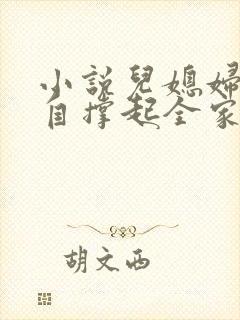 小說兒媳婦
自撐起全家
胡文西